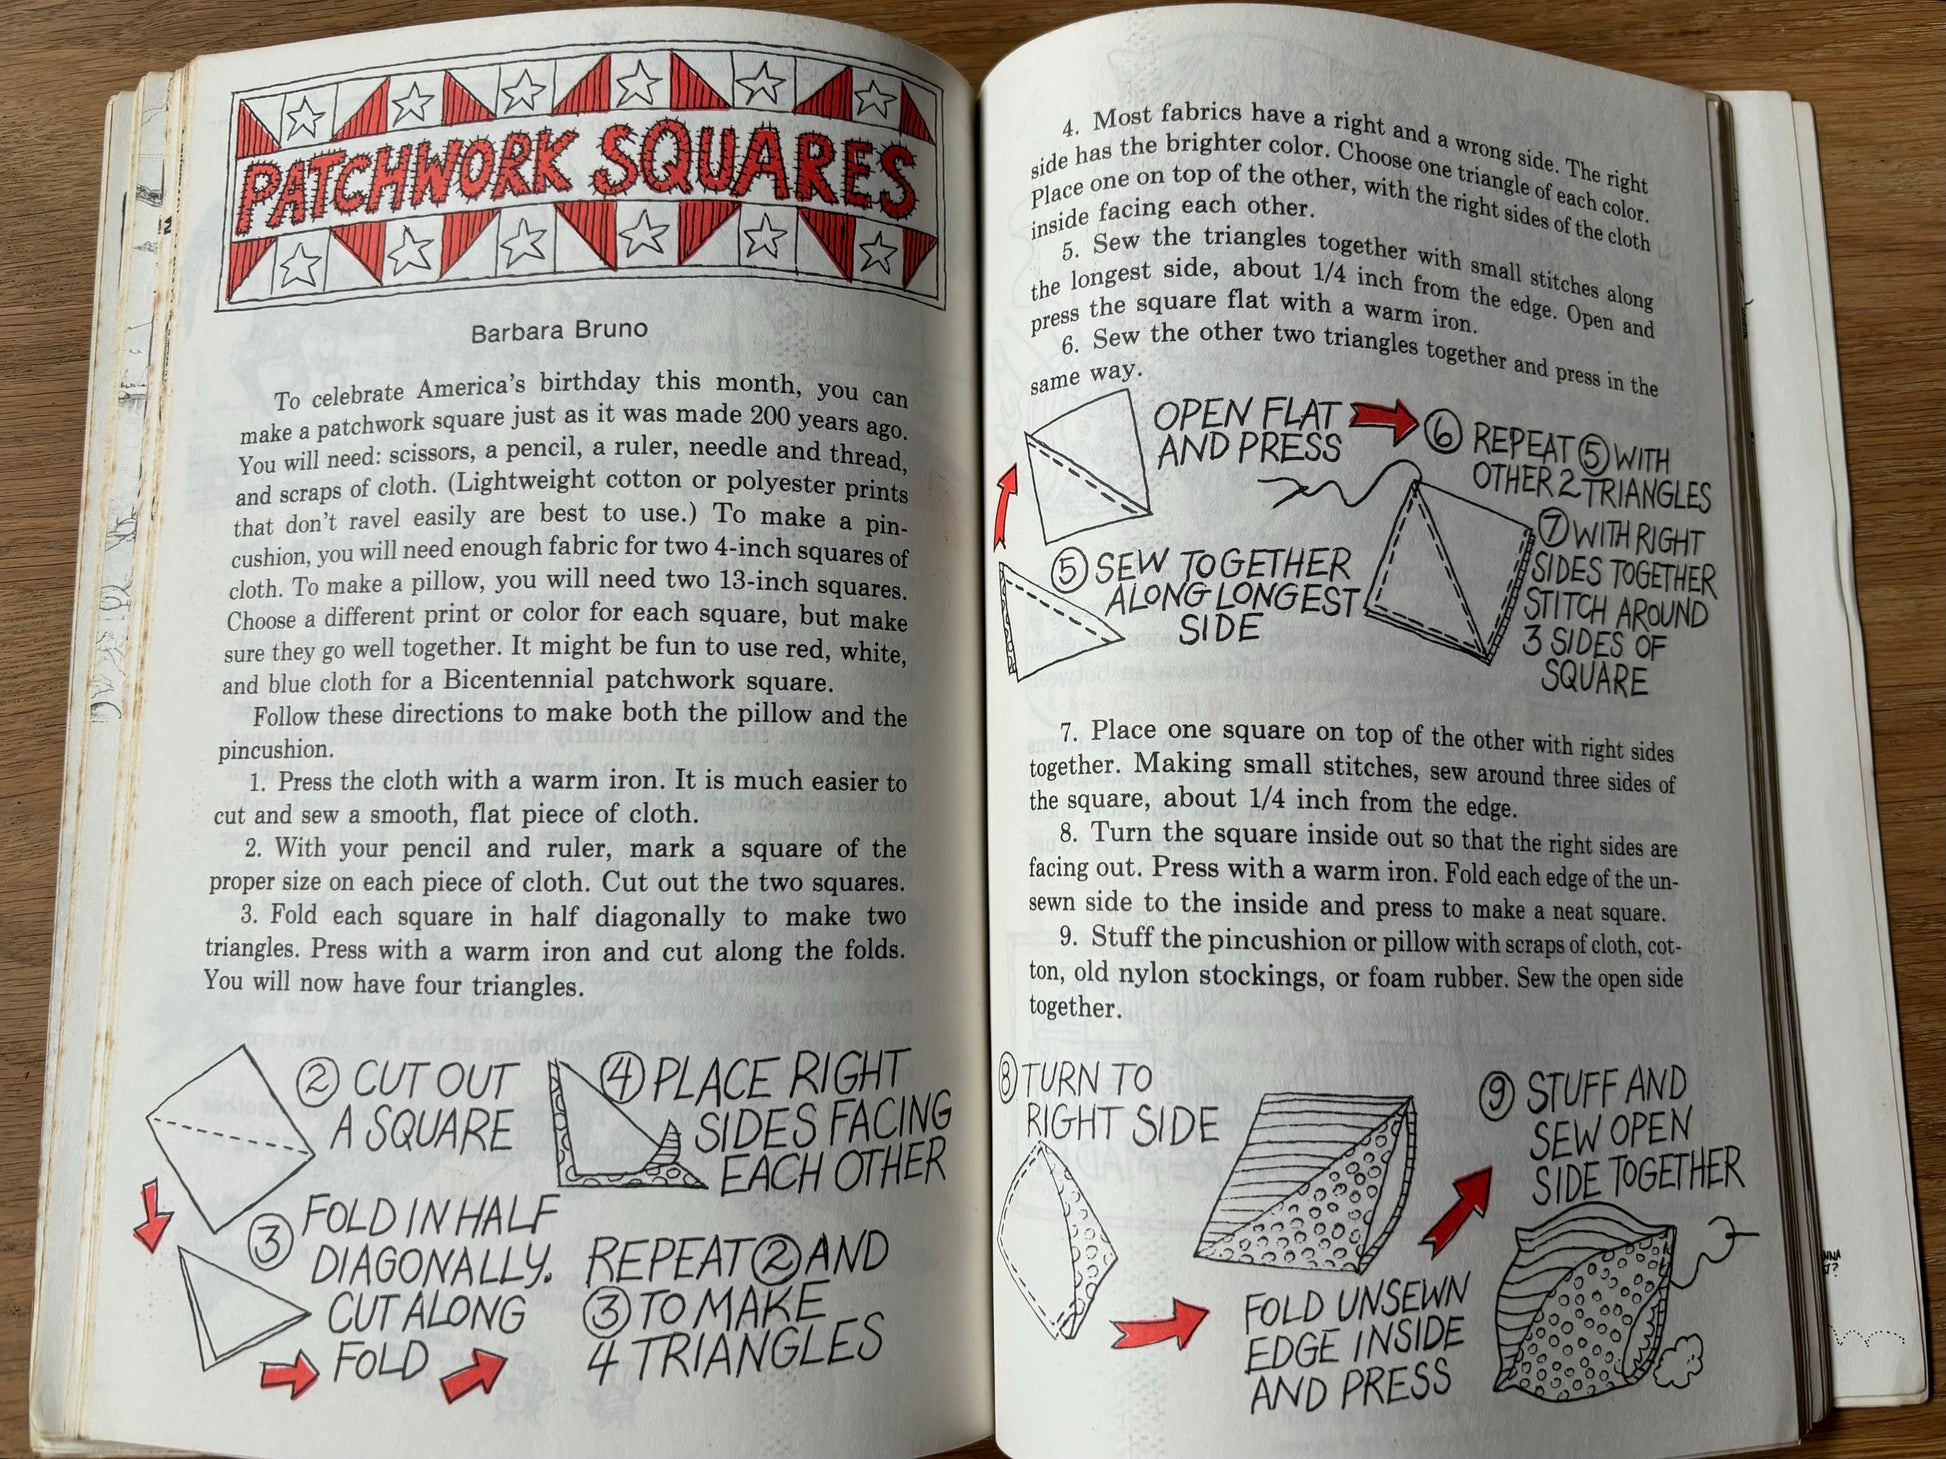 PATCHWORK SQUARES
Barbara Bruno
To celebrate America's birthday this month, you can
make a patchwork square just as it was made 200 years ago.
You will need: scissors, a pencil, a ruler, needle and thread,
and scraps of cloth. (Lightweight cotton or polyester prints
that don't ravel easily are best to use.) To make a pin-
cushion, you will need enough fabric for two 4-inch squares of
cloth. To make a pillow, you will need two 13-inch squares.
Choose a different print or color for each square, but make
sure they go well together. It might be fun to use red, white,
and blue cloth for a Bicentennial patchwork square.
Follow these directions to make both the pillow and the
pincushion.
1. Press the cloth with a warm iron. It is much easier to
cut and sew a smooth, flat piece of cloth.
2. With your pencil and ruler, mark a square of the
proper size on each piece of cloth. Cut out the two squares.
3. Fold each square in half diagonally to make two
triangles. Press with a warm iron and cut along the folds.
You will now have four triangles.
② CUT OUT
A SQUARE
③ FOLD IN HALF
DIAGONALLY.
CUT ALONG
FOLD
④ PLACE RIGHT
SIDES FACING
EACH OTHER
REPEAT ② AND
③ TO MAKE
4 TRIANGLES
4. Most fabrics have a right and a wrong side. The right
side has the brighter color. Choose one triangle of each color.
Place one on top of the other, with the right sides of the cloth
inside facing each other.
5. Sew the triangles together with small stitches along
the longest side, about 1/4 inch from the edge. Open and
press the square flat with a warm iron.
6. Sew the other two triangles together and press in the
same way.
OPEN FLAT
AND PRESS
⑤ SEW TOGETHER
ALONG LONGEST
SIDE
⑥ REPEAT ⑤ WITH
OTHER 2 TRIANGLES
⑦ WITH RIGHT
SIDES TOGETHER
STITCH AROUND
3 SIDES OF
SQUARE
7. Place one square on top of the other with right sides
together. Making small stitches, sew around three sides of
the square, about 1/4 inch from the edge.
8. Turn the square inside out so that the right sides are
facing out. Press with a warm iron. Fold each edge of the un-
sewn side to the inside and press to make a neat square.
9. Stuff the pincushion or pillow with scraps of cloth, cot-
ton, old nylon stockings, or foam rubber. Sew the open side
together.
⑧ TURN TO
RIGHT SIDE
FOLD UNSEWN
EDGE INSIDE
AND PRESS
⑨ STUFF AND
SEW OPEN
SIDE TOGETHER